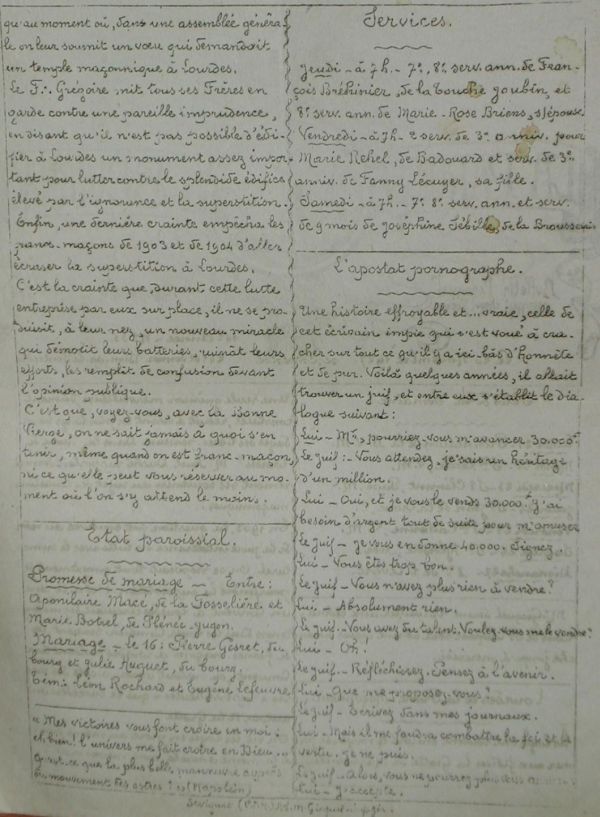 qu'au moment où, dans une assemblée généra-
le on leur soumit un vœu qui demandait
un temple maçonnique à Lourdes.
Le F∴ Grégoire mit tous ses Frères en
garde contre une pareille imprudence,
en disant qu'il n'est pas possible d'édi-
fier à Lourdes un monument assez impor-
tant pour lutter contre le splendide édifice
élevé par l'ignorance et la superstition.
Enfin, une dernière crainte empêcha les
francs-maçons de 1903 et de 1904 d'aller
écraser la superstition à Lourdes.
C'est la crainte que, durant cette lutte
entreprise par eux sur place, il ne se pro-
duisit, à leur nez, un nouveau miracle
qui démolit leurs batteries, ruinât leurs
efforts, les remplit de confusion devant
l'opinion publique.
C'est que, voyez-vous, avec la Bonne
Vierge, on ne sait jamais à quoi s'en
tenir, même quand on est franc-maçon,
ni ce qu'elle peut vous réserver au mo-
ment où l'on s'y attend le moins.
Etat paroissial.
Promesse de mariage — Entre:
Aponilaire Macé, de la Fosselière et
Marie Botrel, de Plénée-Jugon.
Mariage — Le 16: Pierre Gesret, du
bourg et Julie Auguet, du bourg.
Tém: Rochard et Eugène Lefeuvre
« Mes victoires vous font croire en moi:
eh bien! l'univers me fait croire en Dieu...
Qu'est-ce que la plus belle manœuvre auprès
du mouvement des astres? » (Napoléon)
Services.
Jeudi - à 7h. - 7e, 8e serv. ann. de Fran-
çois Bréhinier, de la Touche Joubin, et
8e serv. ann. de Marie-Rose Briens, s/épouse
Vendredi - à 7h - 2 serv. de 3e anniv. pour
Marie Rehel, de Badouard et serv. de 3e
anniv. de Fanny Lécuyer, sa fille.
Samedi - à 7h. - 7e 8e serv. ann. et serv.
de 9 mois de Joséphine Sébille, de la Broussais
L'apostat pornographe.
Une histoire effroyable et... vraie, celle de
cet écrivain impie qui s'est voué à cra-
cher sur tout ce qu'il y a ici-bas d'honnête
et de pur. Voilà quelques années, il allait
trouver un juif, et entre eux s'établit le dia-
logue suivant:
Lui - Mr, pourriez-vous m'avancer 30.000f
Le juif: - Vous attendez, je sais un héritage
d'un million.
Lui - Oui, et je vous le vends 30.000.f J'ai
besoin d'argent tout de suite pour m'amuser
Le juif - Je vous en donne 40.000. Signez.
Lui - Vous êtes trop bon.
Le juif - Vous n'avez plus rien à vendre?
Lui. - Absolument rien.
Le juif. - Vous avez du talent. Voulez-vous me le vendre?
Lui - Oh!
Le juif. - Réfléchissez. Pensez à l'avenir.
Lui - Que me proposez-vous?
Le juif - Ecrivez dans mes journaux.
Lui - Mais il me faudra combattre la foi et la
vertu. Je ne puis.
Le juif - Alors, vous ne pourrez plus vous
Lui - J'accepte.